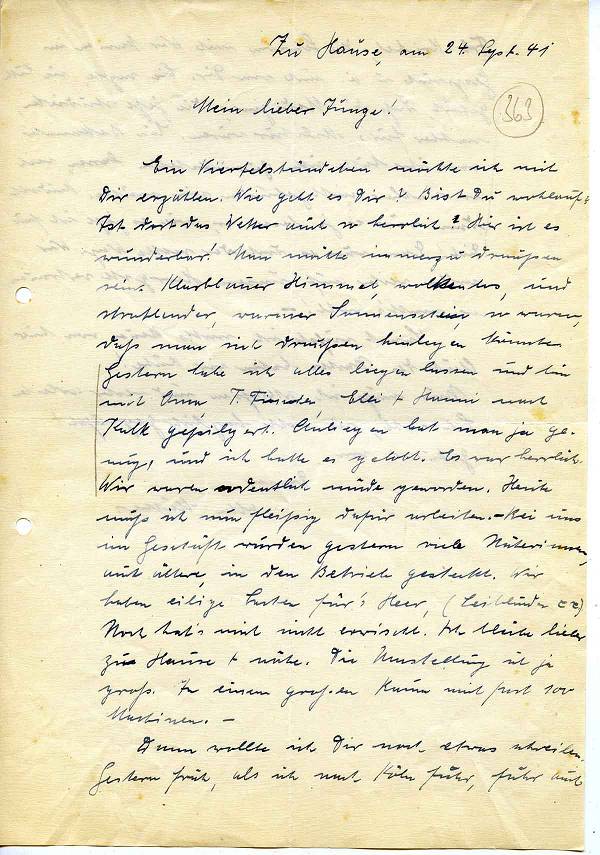 Zu Hause, am 24. Sept. 41
363
Mein lieber Junge!
Ein Viertelstündchen möchte ich mit
Dir erzählen. Wie geht es Dir? Bist Du wohlauf?
Ist dort das Wetter auch so herrlich? Hier ist es
wunderbar! Man möchte immerzu draußen
sein. Klarblauer Himmel, wolkenlos, und
strahlender, warmer Sonnenschein, so warm,
daß man sich draußen hinlegen könnte.
Gestern habe ich alles liegen lassen und bin
mit Oma, T. Frieda, Elli + Hanni nach
Kalk gepilgert. Anliegen hat man ja ge-
nug, und ich hatte es gelobt. Es war herrlich.
Wir waren ordentlich müde geworden. Heute
muß ich nun fleißig dafür arbeiten. – Bei uns
im Geschäft wurden gestern viele Näherinnen,
auch ältere, in den Betrieb gesteckt. Wir
haben eilige Sachen für's Heer, (Leibbinden
Noch hat's mich nicht erwischt. Ich bleibe lieber
zu Hause + nähe. Die Umstellung ist ja
groß. In einem großen Raum mit fast 100
Maschinen. –
Dann wollte ich Dir noch etwas schreiben.
Gestern früh, als ich nach Köln fuhr, fuhr auch